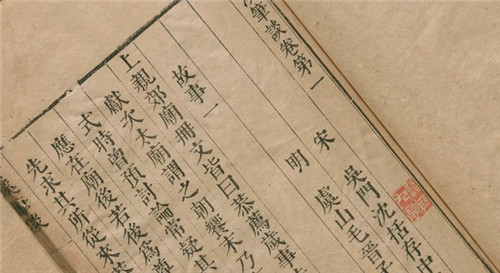 筆談卷第一
宋 吳門沈括存中
明 虞山毛晉子
故事一
上親郊廟冊文皆曰恭薦歲事
獻次太廟謂之朝饗末乃
式時曾預討論常疑其
應在廟後若後為尊
先求其所從來